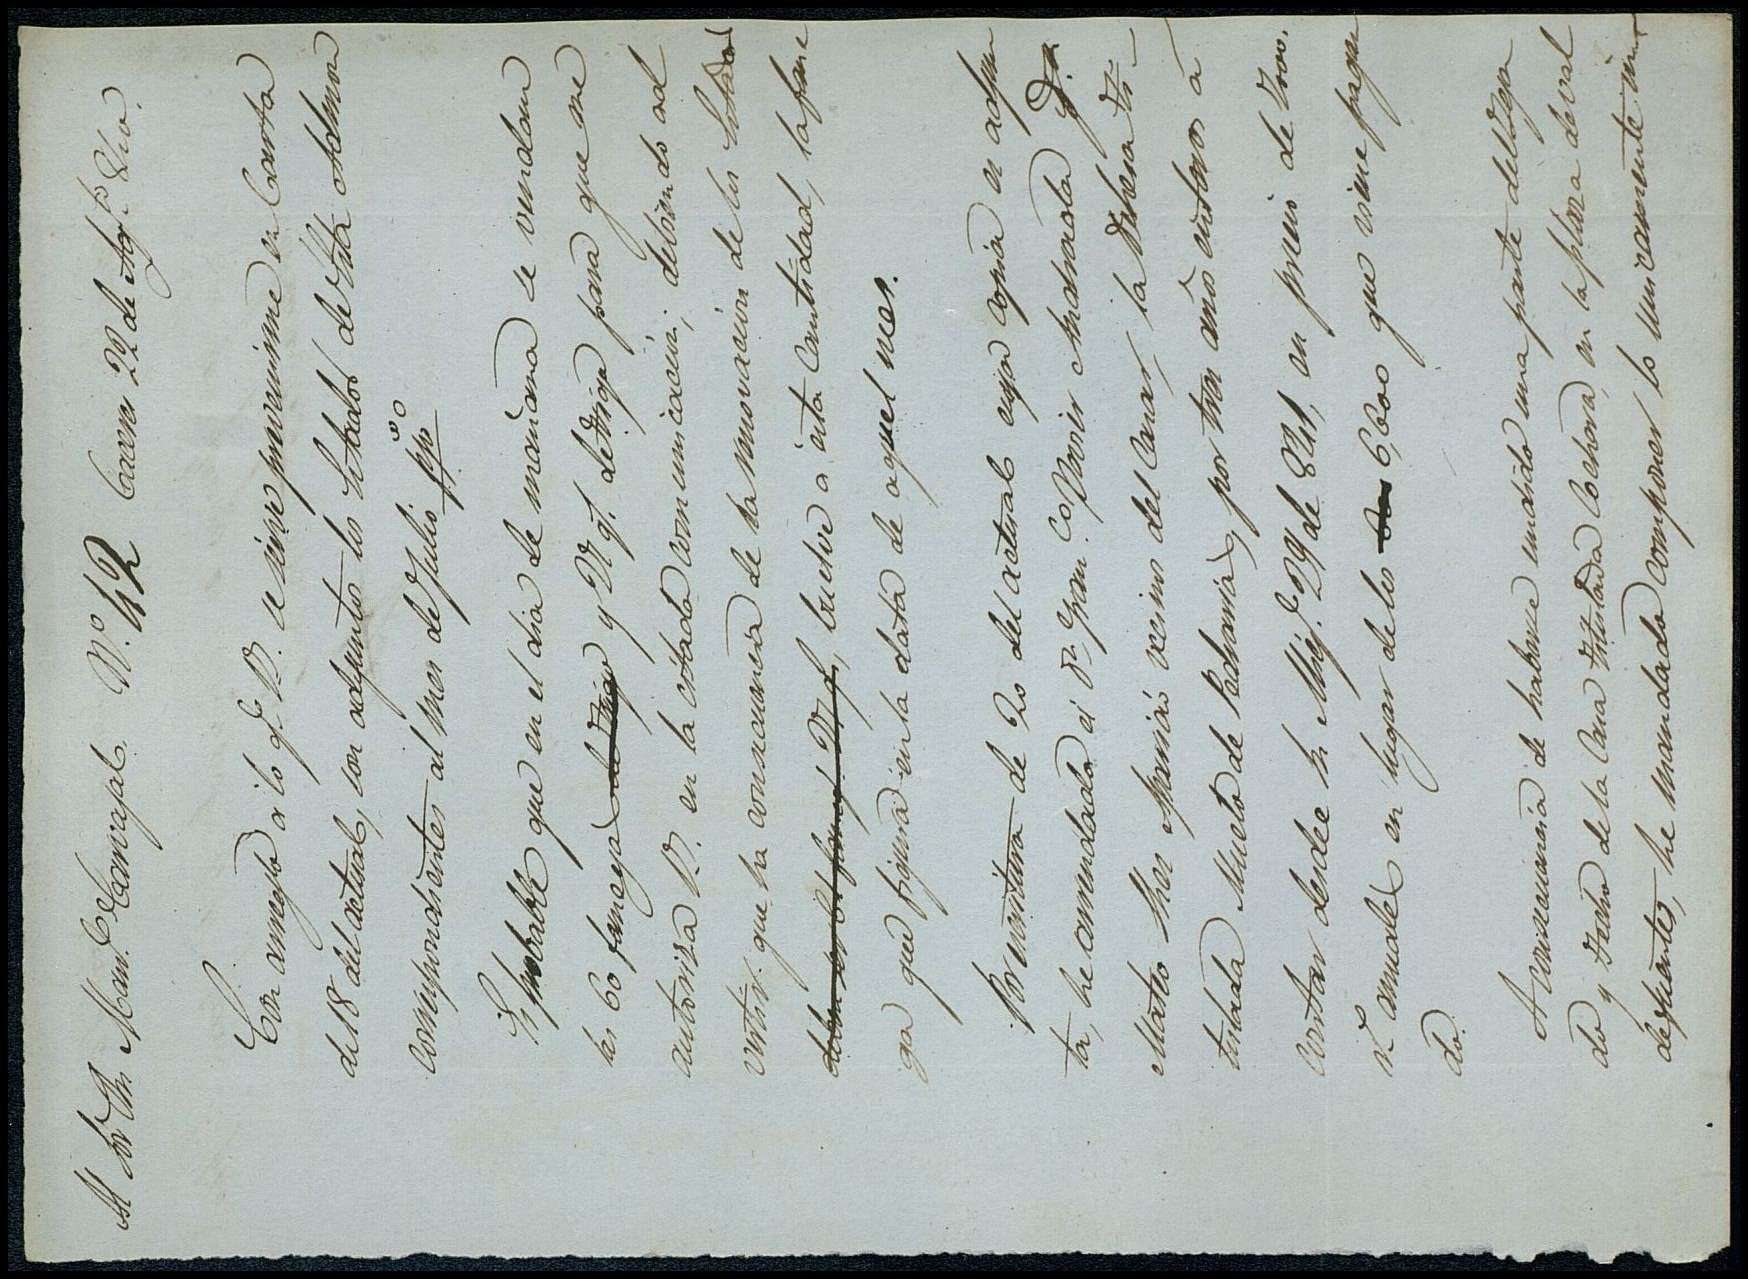 Al Sor Dn Manl Carvajal. N.º 42 Cácern 22 de Agt.º
Con arreglo a lo q.e V. se sirve prevenirme en Carta
de 18 del actual, son adjuntos los Estados de esta Admon
correspondientes al mes de Julio ppdo
Es probable que en el dia de mañana se vendan
las 60 fanegas y de trigo para que me
autoriza V. en la citada comunicacion; debiendo ad
vertir que ha consecuencia de la renovacion de los Estados
vuelve a esta Cantidad, la fane
ga que figura en la data de aquel mes.
Por escritura de 20 del actual cuya copia es adjun
ta, he arrendado á Dn Fran.co Andrada
vecinos del Casar, la Dehesa ti
tulada Mueta de por tres años enteros á
contar desde Sn Mig.l 29 de en precio de
r.s anuales en lugar de los 6,600 que viene pagan
do.
A consecuencia de haberse undido una parte del teja
do y techo de la Casa titulada Cochera, en la plaza de
he mandado componer lo unicamente